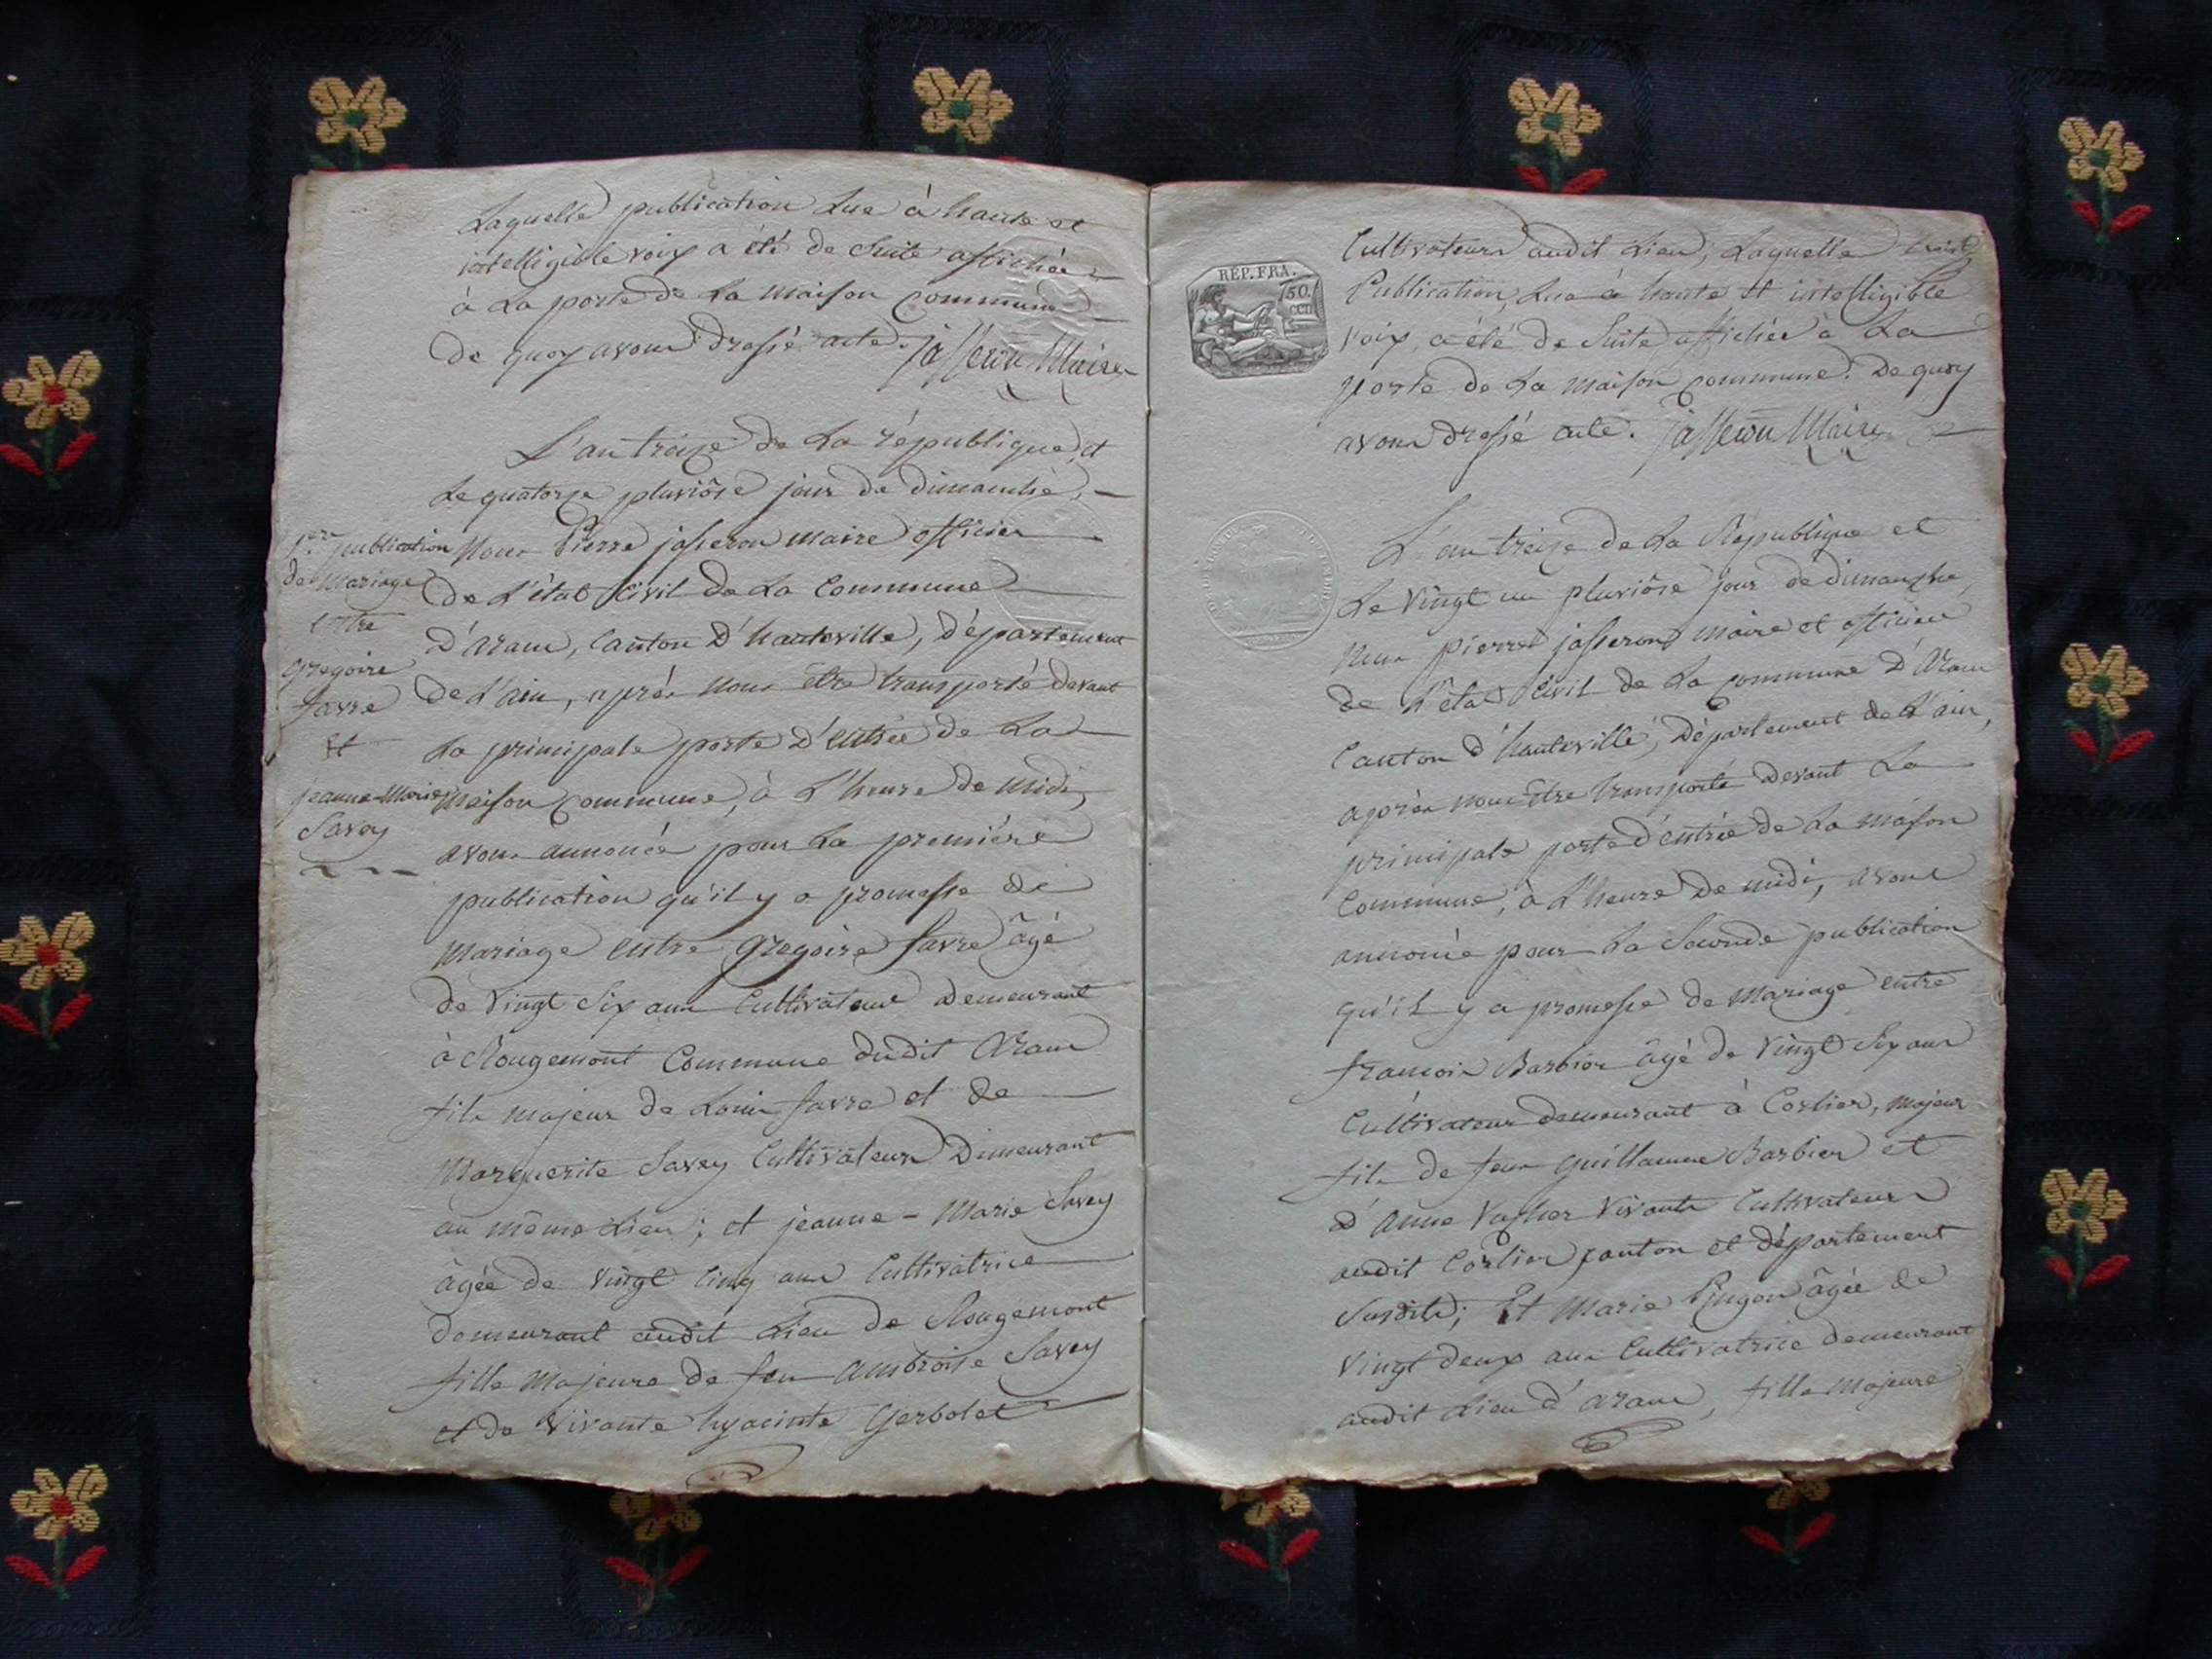 Laquelle publication Lue à haute et
intelligible voix a été de Suite affichée
à La porte de La maison Commune
de quoy avons dressé acte. jasseron Maire
L'an treize de La république et
Le quatorze pluviôse jour de dimanche,
1ère publication
de Mariage
entre
gregoire
favre
Et
jeanne-Marie
Savey
Nous Pierre jasseron maire officier
de L'état Civil de La Commune
D'aranc, Canton D'hauteville, Département
De L'ain, après Nous être transporté devant
La principale porte D'entrée de La
Maison Commune, à L'heure de midi,
avons annoncé pour La première
publication qu'il y a promesse de
Mariage entre gregoire favre âgé
de Vingt Six ans Cultivateur Demeurant
à Rougemont Commune dudit Aranc
fils majeur de Louis favre et de
Marguerite Savey Cultivateurs Demeurant
au même Lieu; et jeanne-Marie Savey
âgée de Vingt Cinq ans Cultivatrice
demeurant audit Lieu de Rougemont
fille Majeure de feu Ambroise Savey
et de Vivante hyacinte Gerbolet
REP. FRA.
50.
CEN
Cultivateurs audit Lieu; Laquelle
Publication, Lue à haute Et intelligible
Voix, a été de Suite affichée à La
porte de La Maison Commune. De quoy
avons Dressé acte. jasseron Maire
L'an treize de La République et
Le Vingt un pluviôse jour de dimanche,
Nous pierre jasseron maire et officier
de L'état Civil de La Commune D'Aranc
Canton d'hauteville, Département de L'ain,
après nous être transporté devant La
principale porte d'entrée de La maison
Commune, à L'heure de midi, avons
annoncé pour La Seconde publication
qu'il y a promesse de Mariage entre
francois Barbier âgé de Vingt Six ans
Cultivateur demeurant à Corlier, majeur
fils de feu guillaume Barbier et
d'anne Vivante Cultivateurs
audit Corlier canton et département
Susdits; Et Marie Pingon âgée de
Vingt deux ans Cultivatrice demeurant
audit Lieu d'aranc, fille Majeure